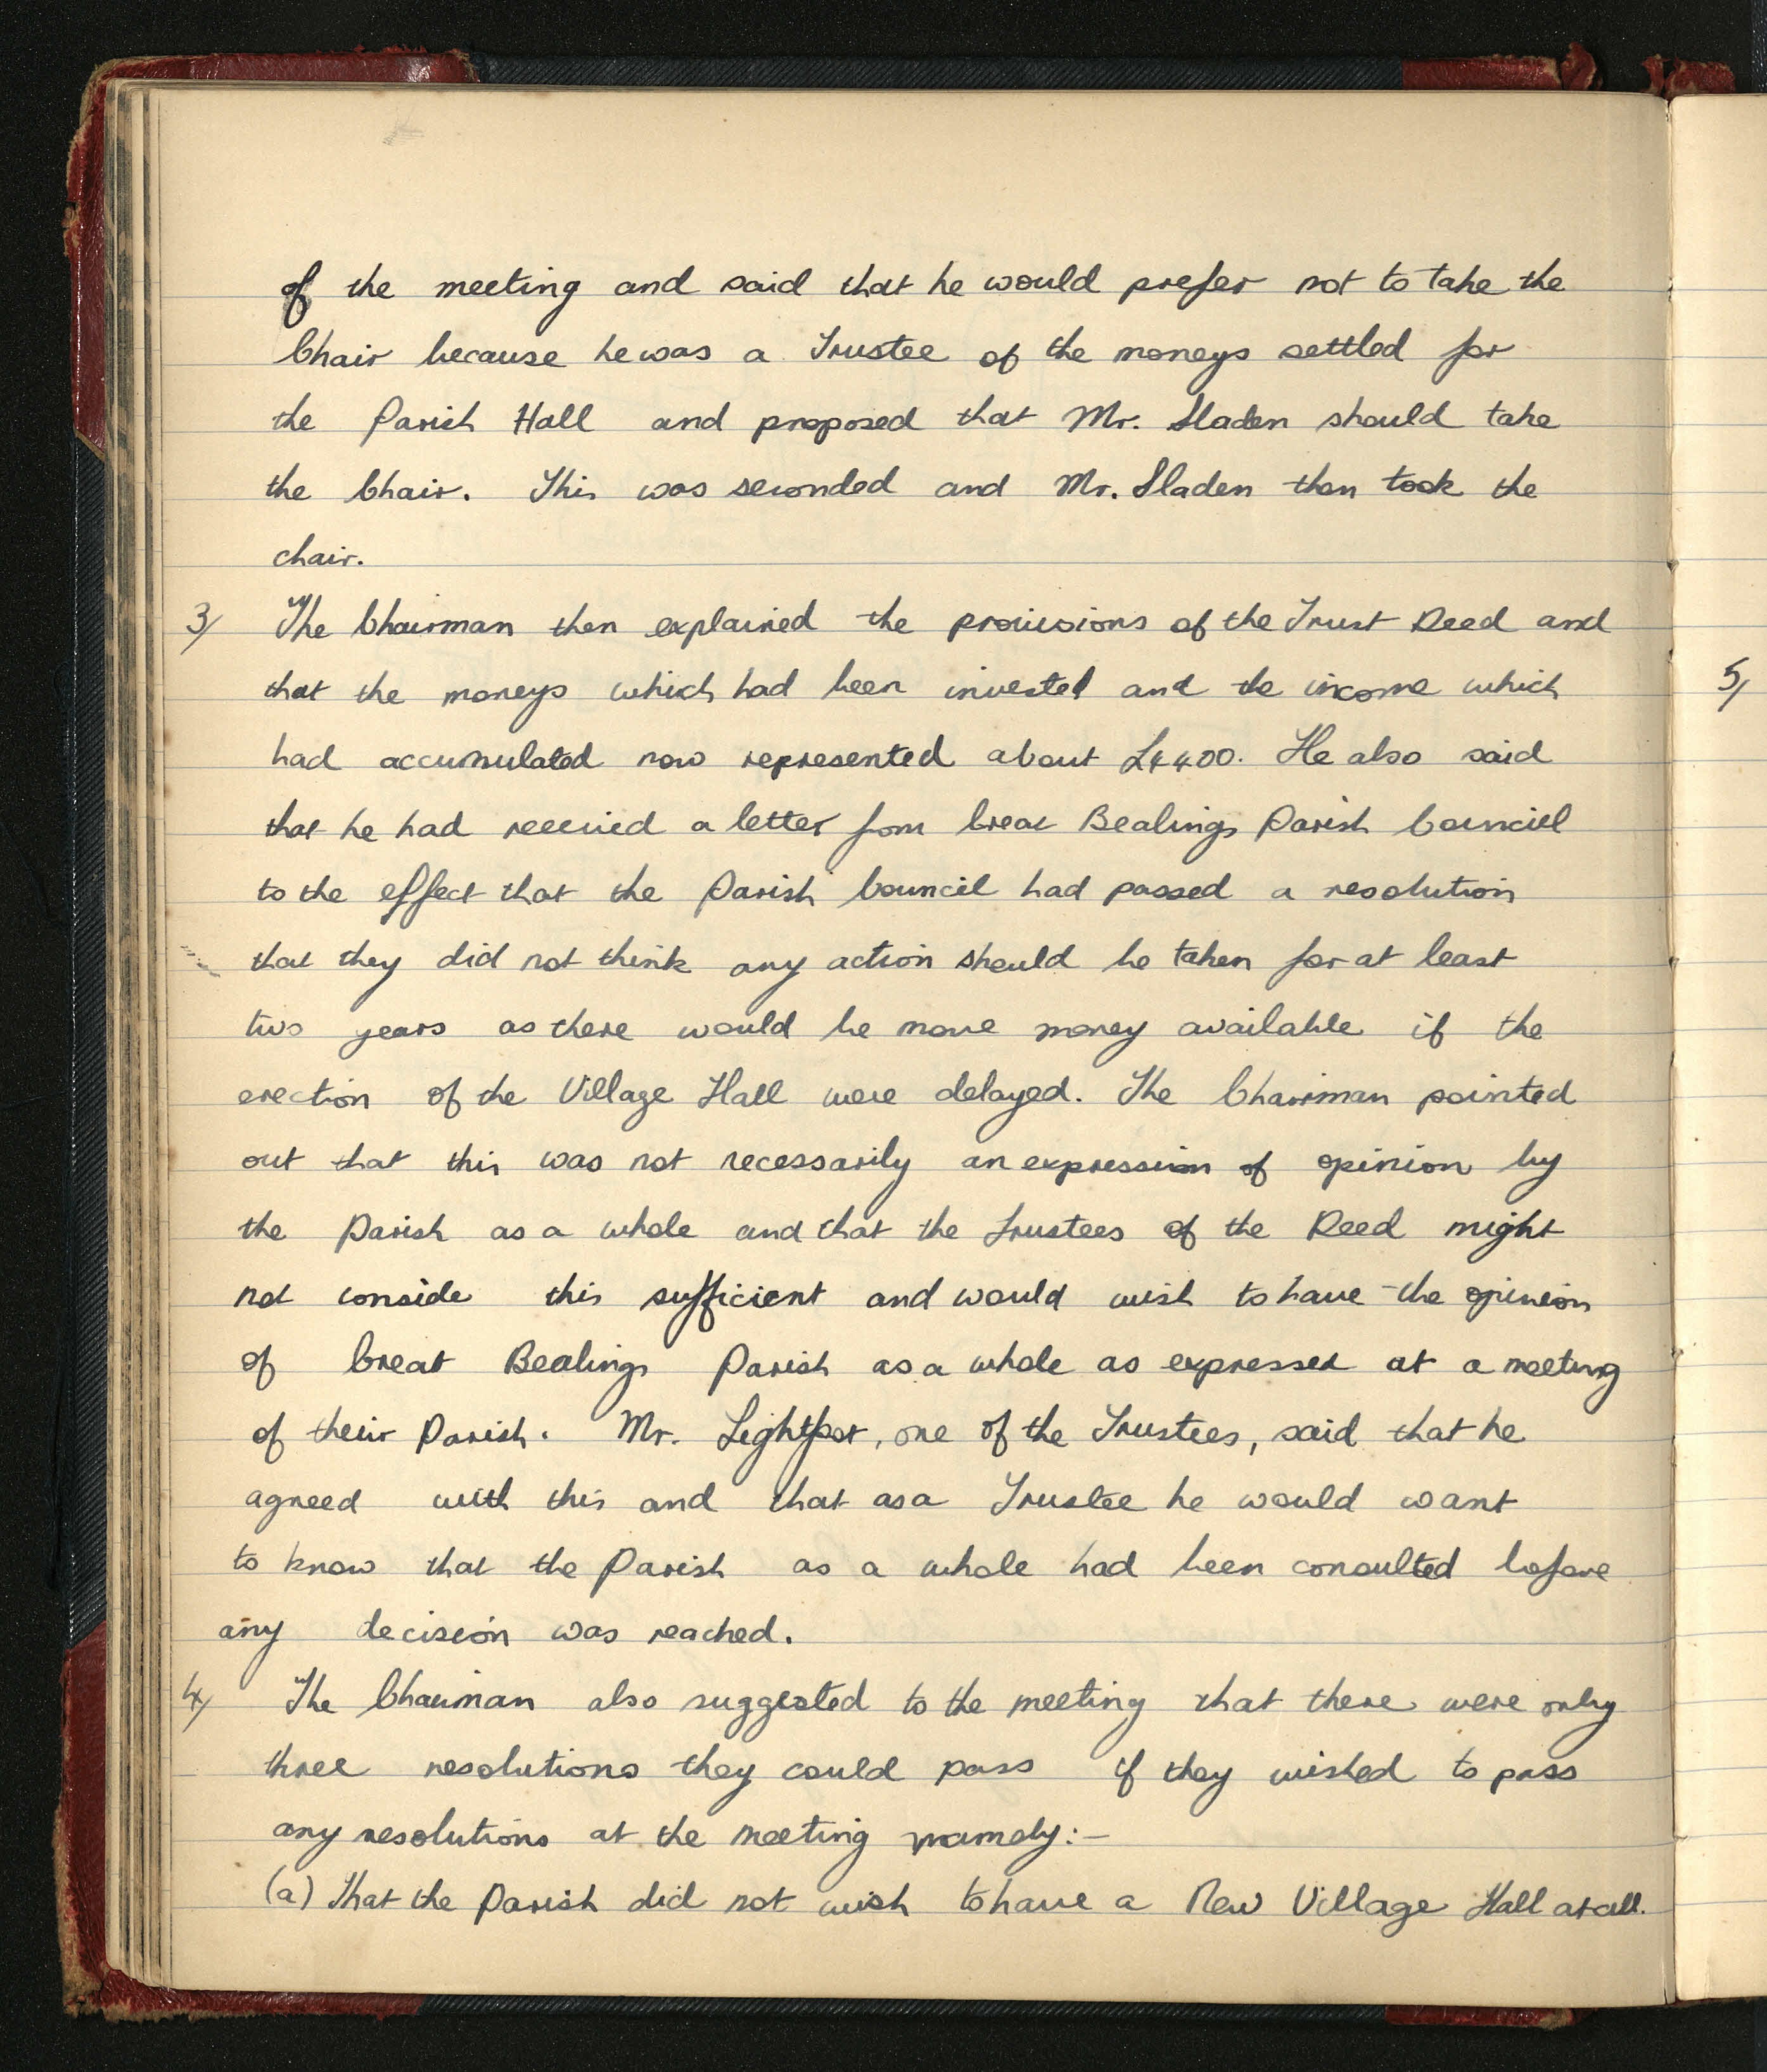 of the meeting and said that he would prefer not to take the
Chair because he was a Trustee of the moneys settled for
the Parish Hall and proposed that Mr. Sladen should take
the Chair. This was seconded and Mr. Sladen then took the
chair.
3/ The Chairman then explained the provisions of the Trust Deed and
that the moneys which had been invested and the income which
had accumulated now represented about £4400. He also said
that he had received a letter fom Great Bealings Parish Council
to the effect that the Parish Council had passed a resolution
that they did not think any action should be taken for at least
two years as there would be more money available if the
erection of the Village Hall were delayed. The Chairman pointed
out that this was not necessarily an expression of opinion by
the Parish as a whole and that the trustees of the Deed might
not conside this sufficient and would wish to have the opinion
of Great Bealings Parish as a whole as expressed at a meeting
of their Parish. Mr. Lightfoot, one of the Trustees, said that he
agreed with this and that as a Trustee he would want
to know that the Parish as a whole had been consulted before
any decision was reached.
4/ The Chairman also suggested to the meeting that there were only
three resolutions they could pass if they wished to pass
any resolutions at the meeting namely:-
(a) That the Parish did not wish to have a New Village Hall at all.
5/